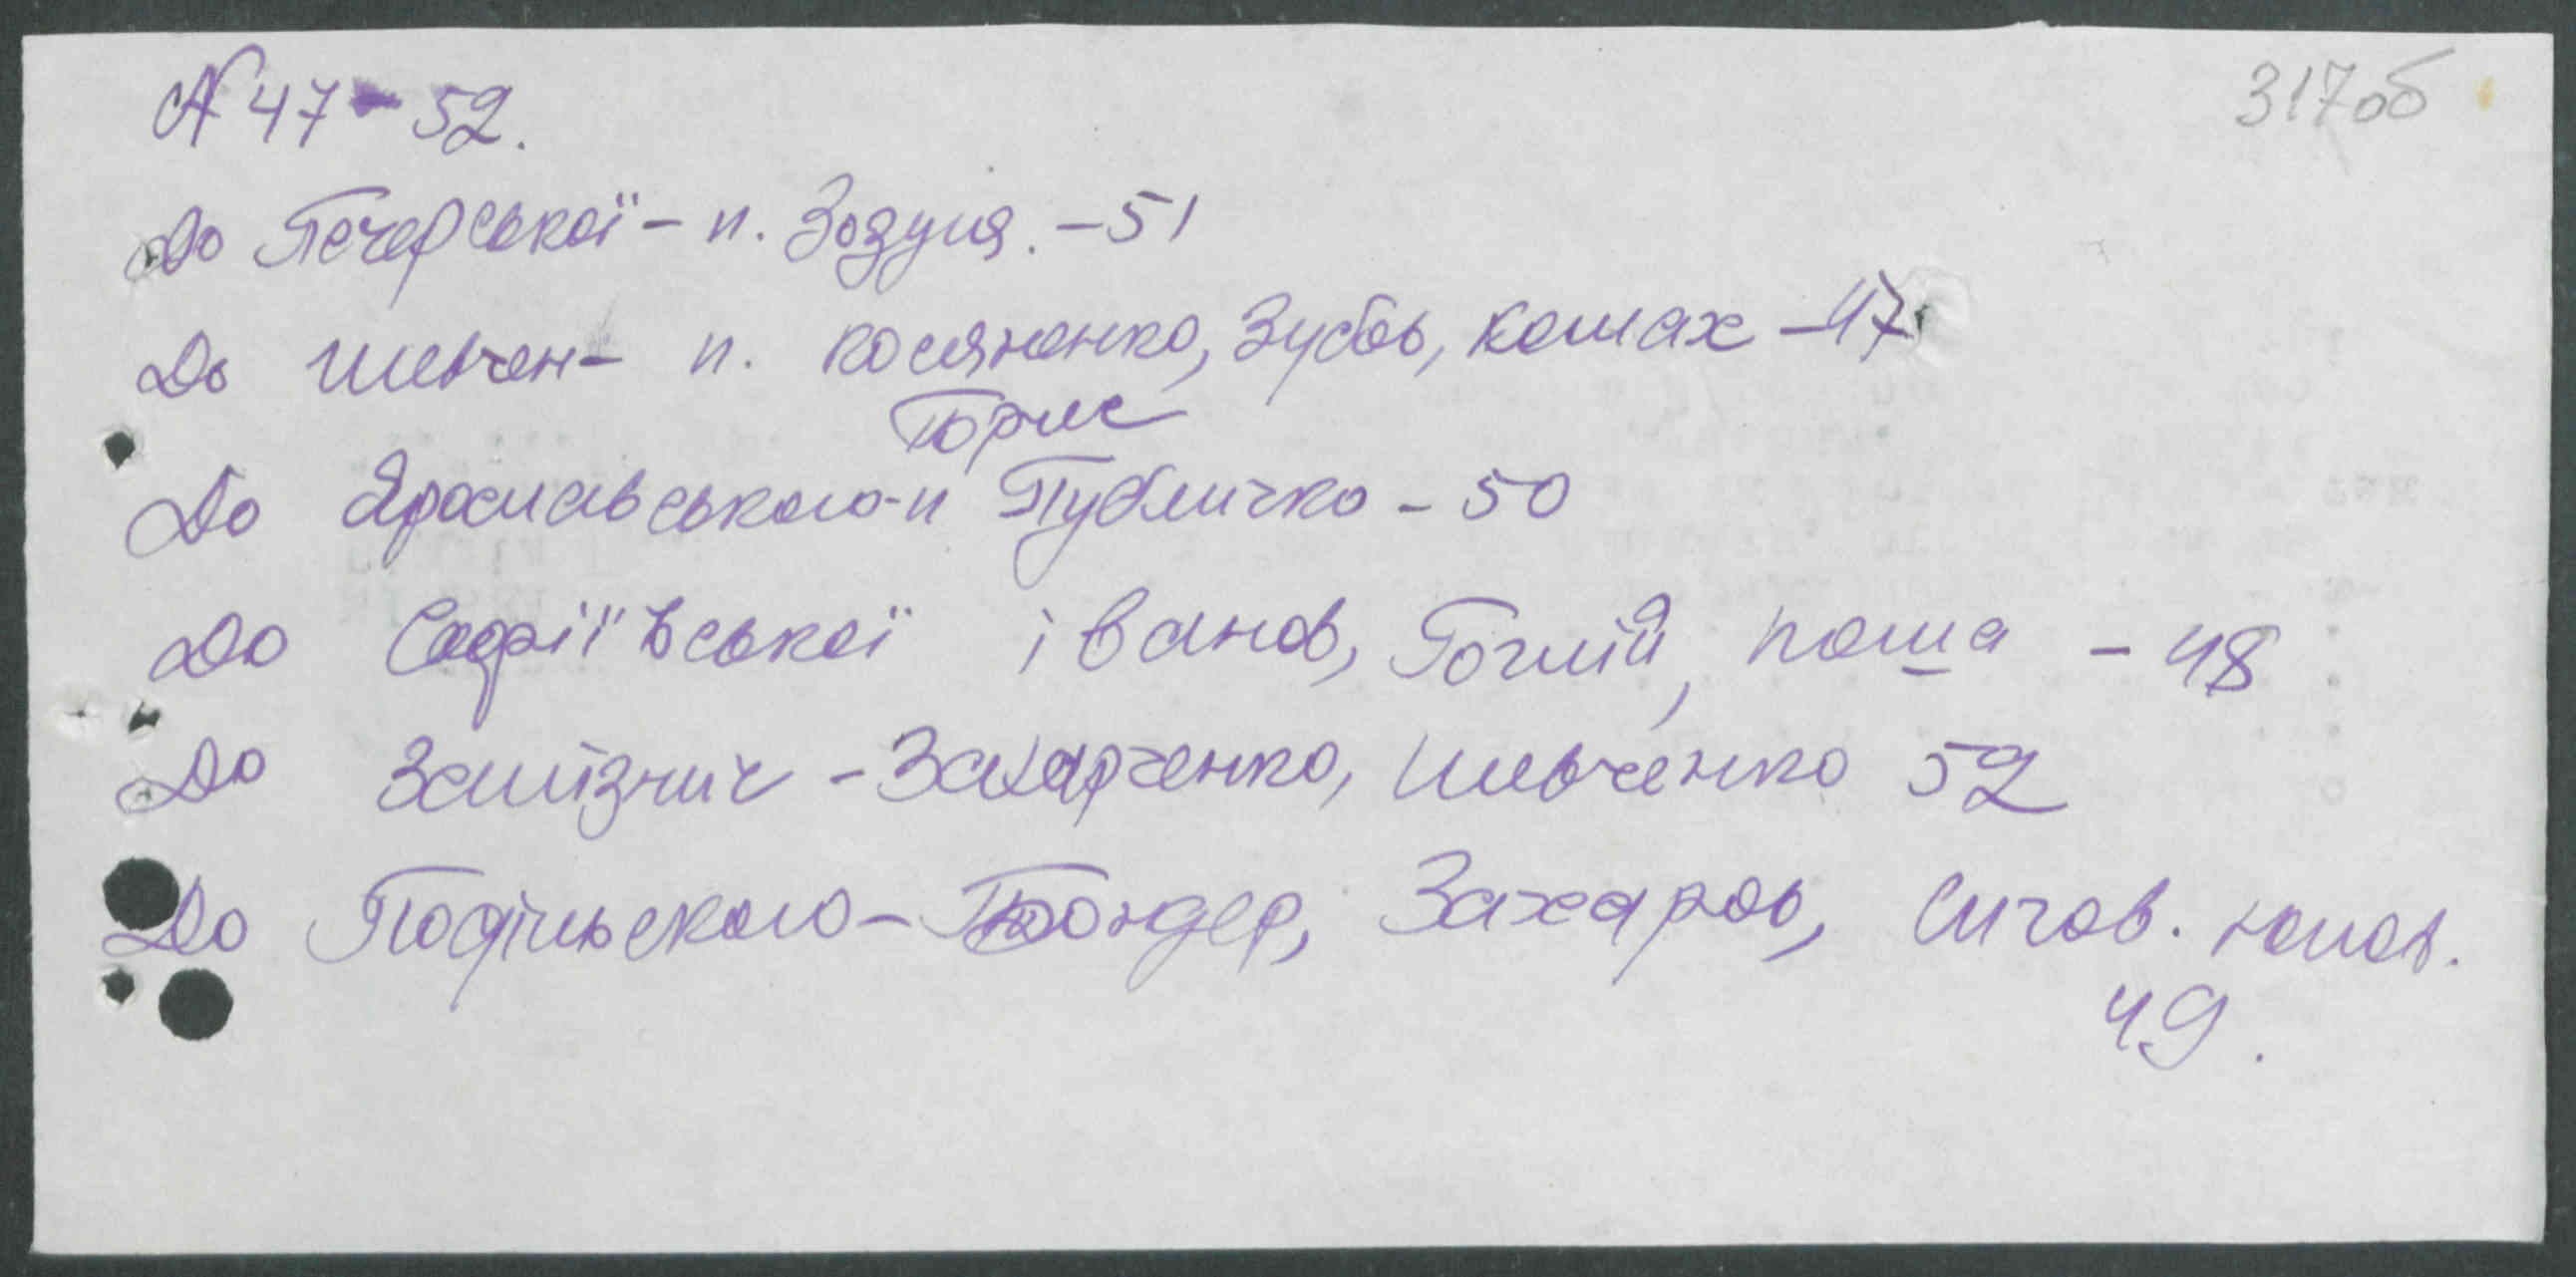 317об
№ 47-52.
До Печерської - п. Зозуля. - 51
До Шевчен- п. Косяненко, Зубов, Комах - 47
Борис
До Ярославського-п Публичко - 50
До Софіївської Іванов, Гоглій, паша - 48
До Залізнич - Захарченко, Шевченко 52
До Подільського - Бондер, Захаров,
49.